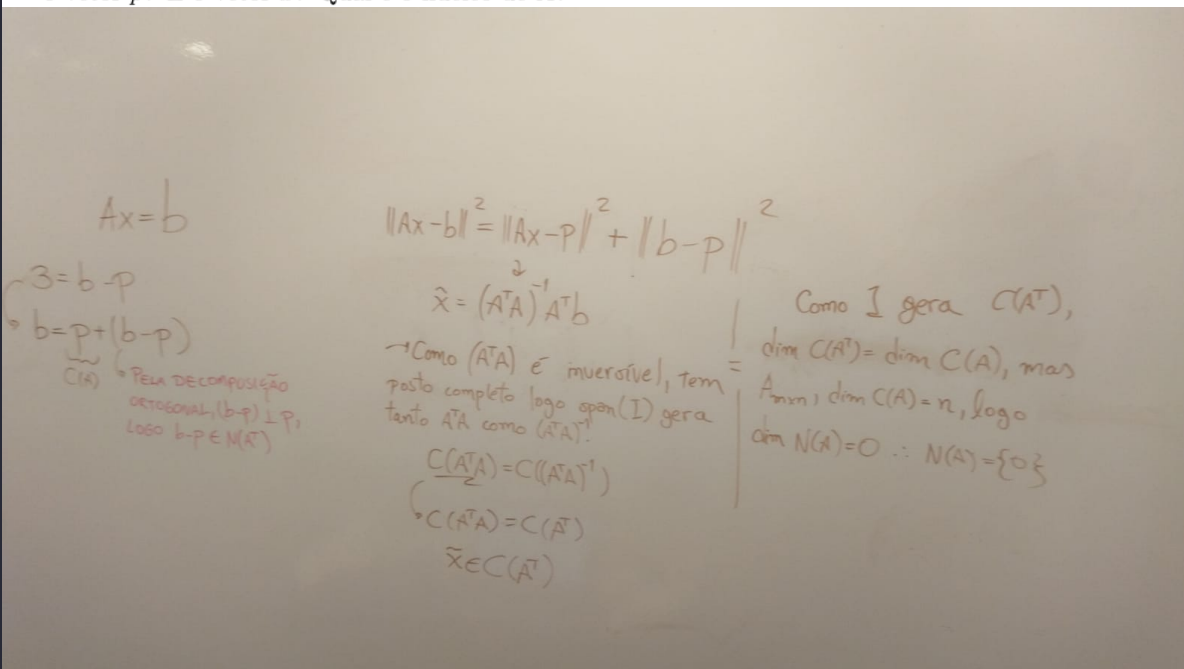 Ax=b
3=b-p
b=p+(b-p)
C(A)
PELA DECOMPOSIÇÃO
ORTOGONAL, (b-p)⊥p,
LOGO b-p∈N(Aᵀ)
||Ax-b||²=||Ax-p||²+||b-p||²
x̂=(AᵀA)⁻¹Aᵀb
→Como (AᵀA) é inversível, tem
posto completo logo span(I) gera
tanto AᵀA como (AᵀA)⁻¹.
C(AᵀA)=C((AᵀA)⁻¹)
C(AᵀA)=C(Aᵀ)
x̂∈C(Aᵀ)
Como I gera C(Aᵀ),
dim C(Aᵀ)=dim C(A), mas
Amxn, dim C(A)=n, logo
dim N(A)=0 ∴ N(A)={0}